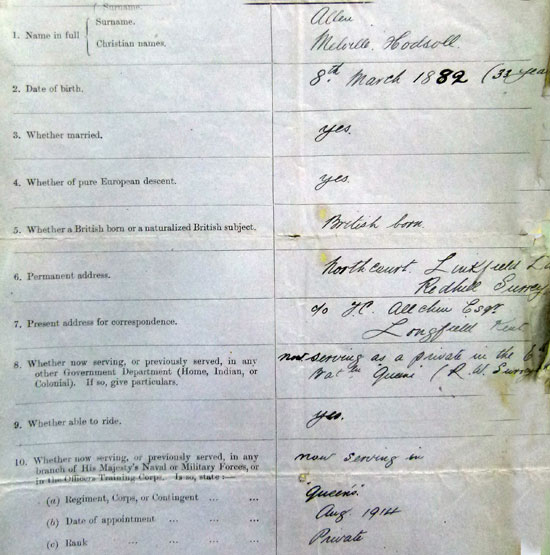 Surname.
Surname. Allen
1. Name in full
Christian names. Melville Hodsoll.
2. Date of birth. 8th March 1882 (33 yea
3. Whether married. yes.
4. Whether of pure European descent. yes.
5. Whether a British born or a naturalized British subject. British born
6. Permanent address. Northcourt. Linkfield
Redhill Surrey
7. Present address for correspondence. c/o Esqr
Longfield Kent
8. Whether now serving, or previously served, in any now serving as a private in the 6
other Government Department (Home, Indian, or Batn Queens (R. W. Surrey
Colonial). If so, give particulars.
9. Whether able to ride. yes.
10. Whether now serving, or previously served, in any now serving in
branch of His Majesty's Naval or Military Forces, or
in the Officers Training Corps. If so, state :—
(a) Regiment, Corps, or Contingent ... ... Queens.
(b) Date of appointment ... ... ... Aug. 1914
(c) Rank ... ... ... ... Private